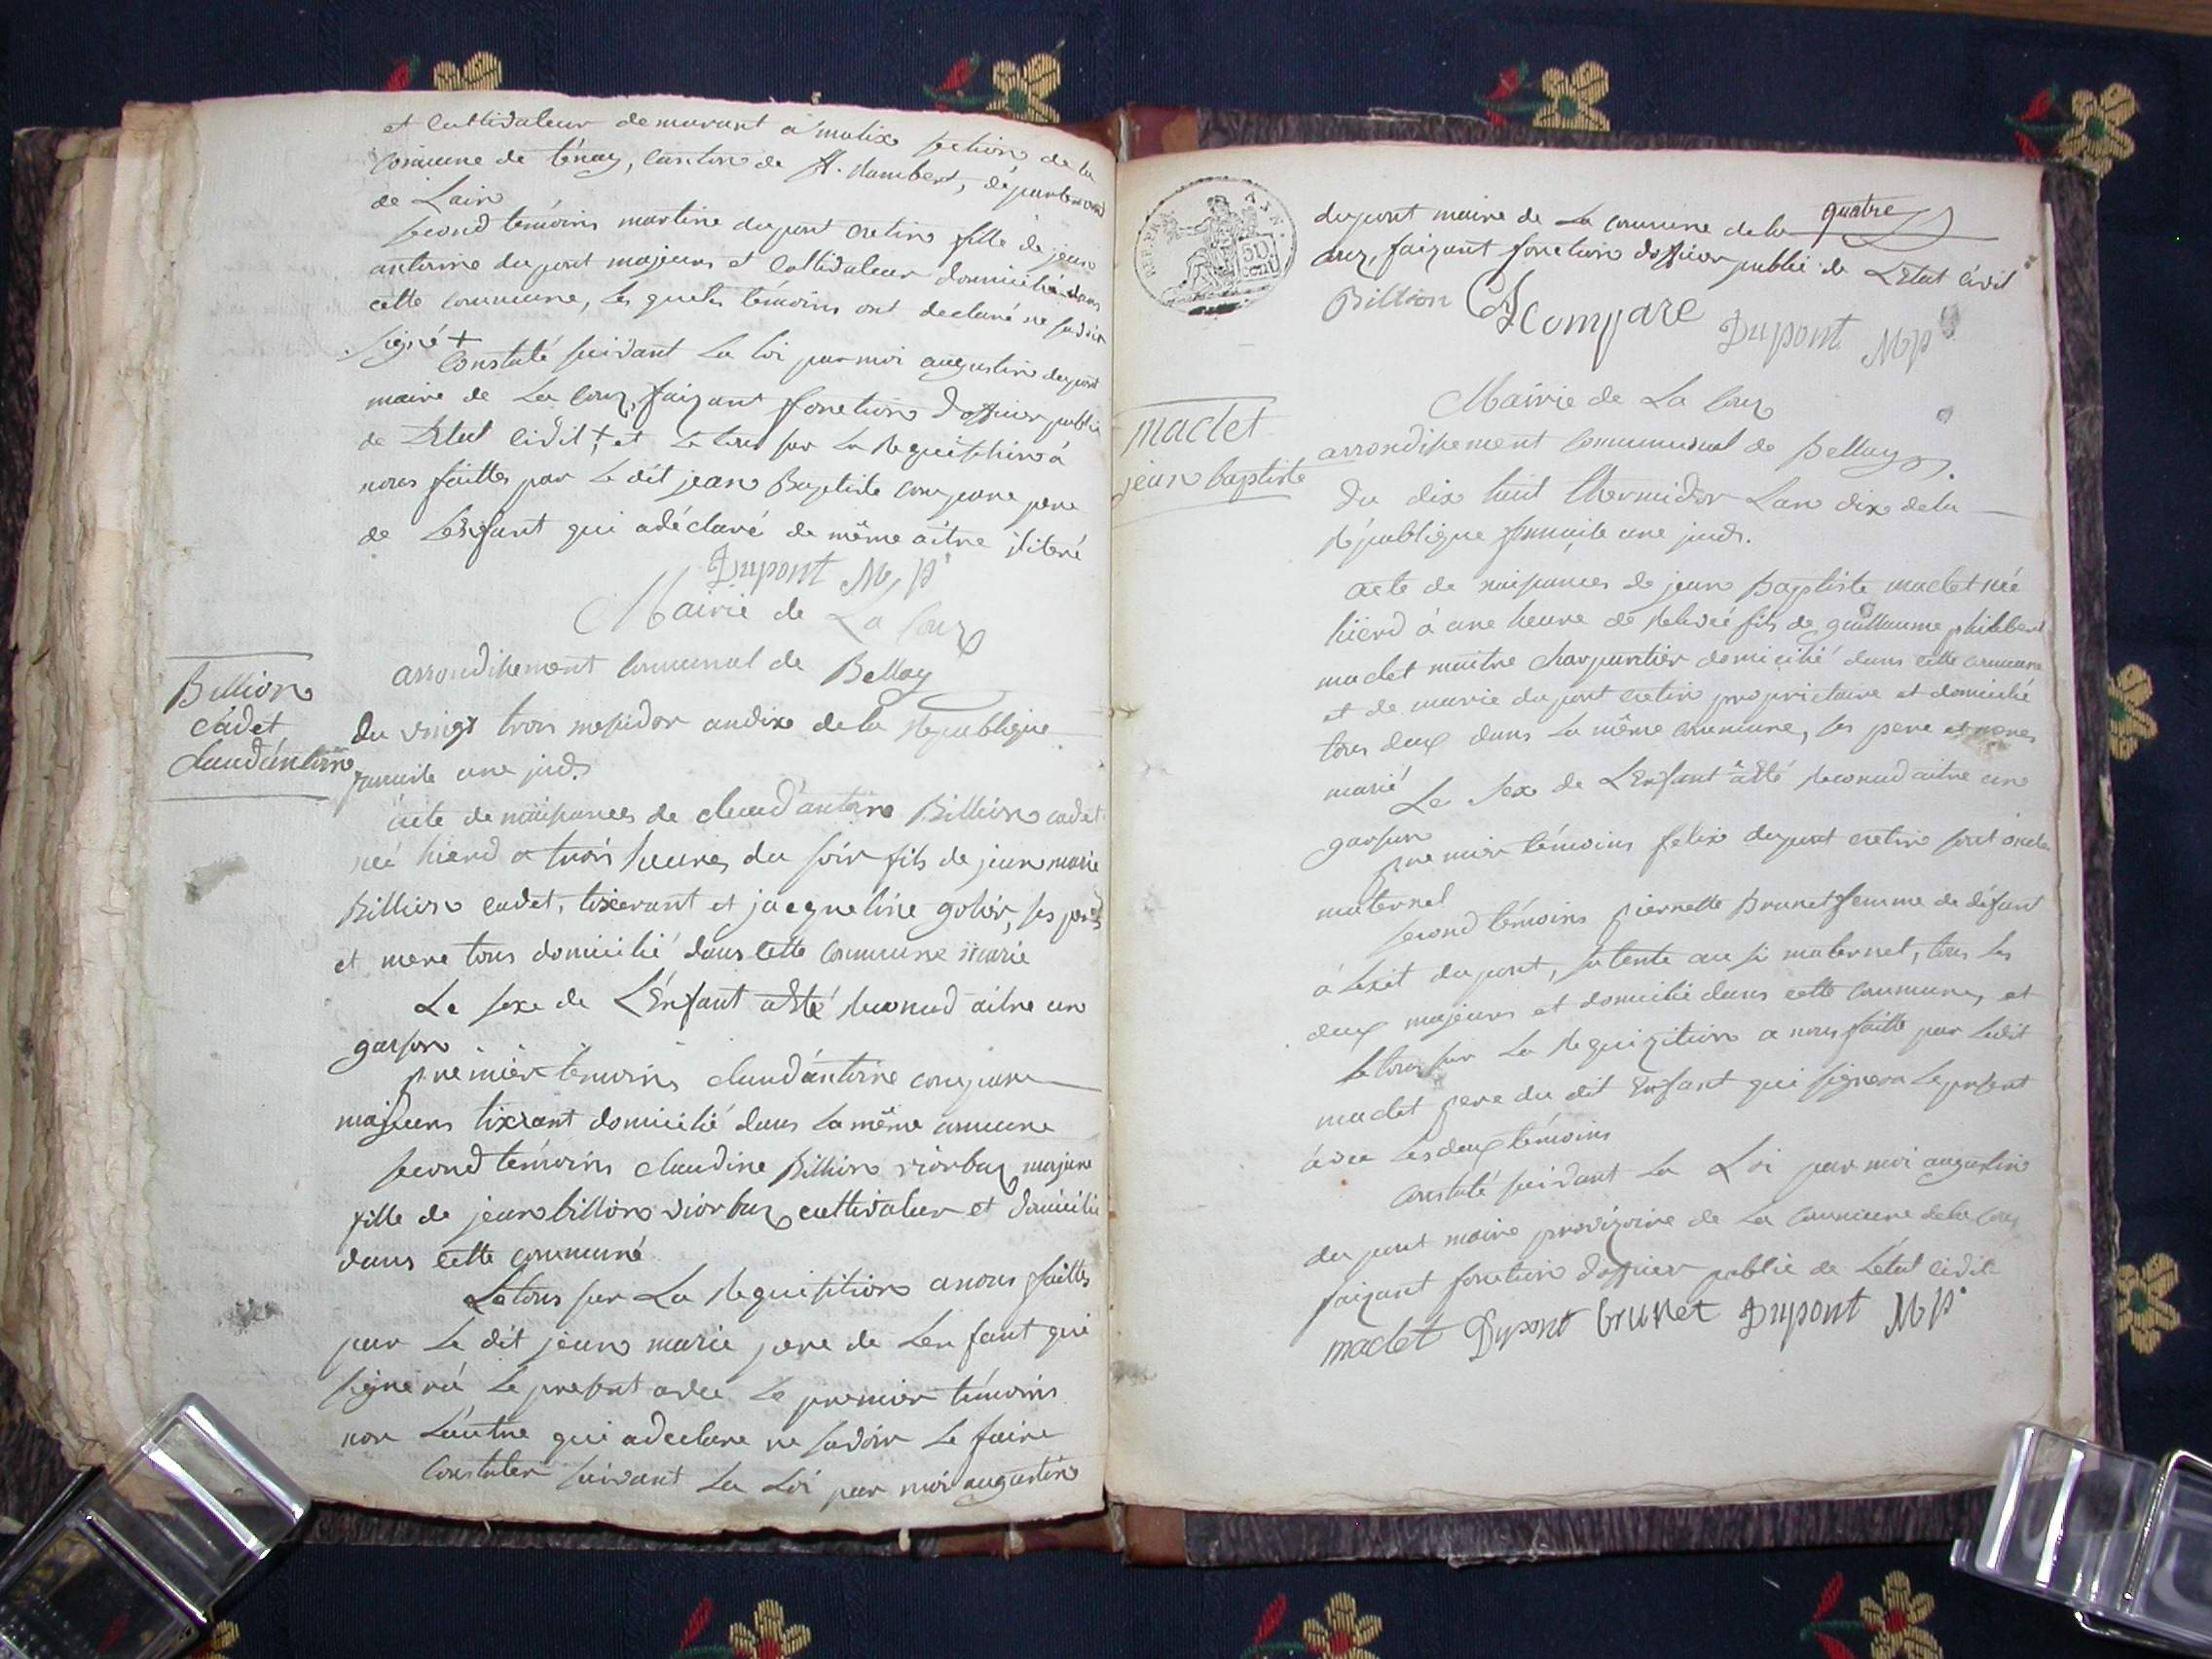 et Cultivateur demeurant a malix section de la
Commune de tenay, Canton de St. Rambert, département
de Lain
second temoins martine dupont cretin fille de jean
antoine dupont majeurs et Cultivateur domicilié dans
cette Commune, les quels témoins ont declaré ne savoir
signé +
Constaté suivant La loi par moi augustin dupont
maire de La Coux, faizant fonction dofficier public
de Létat Civil + et Le tous sur La Requisition à
nous faittes par Le dit jean Baptiste Compare pere
de Lenfant qui a déclaré de même aitre iliteré
Dupont M P
Mairie de La Coux
arrondissement Communal de Bellay
Billion
cadet
Claud'antoine
Du vingt trois messidor an dix de la République
francaise une jud.
acte de naissances de claud'antoine Billion cadet
néé hierd a trois heures du soir fils de jean marie
Billion cadet, tixerant et jacqueline gohir, ses pere
et mere tous domicilié dans cette Commune marié
Le sexe de L'Enfant a Eté Reconud aitre un
garson
premier temoins claud'antoine compare
majeurs tixerant domicilié dans la même commune
second témoins claudine Billion riorbaz majure
fille de jean billion riorbaz cultivateur et domicilié
dans cette commune
Le tous sur La Requisition a nous faittes
par Le dit jean marie pere de Lenfant qui
signera Le present avec Le premier témoins
non Lautre qui a declare ne savoir Le faire
Constater suivant La Loi par moi augustin
REP. FRA.
50
cent
quatre
dupont maire de La commune de la
Coux, faizant fonction dofficier public de LEtat Civil
Billion Compare Dupont M P
Mairie de La Coux
arrondissement Communal de Bellay
maclet
jean baptiste
Du dix huit thermidor Lan dix de la
République francaise une jud.
acte de naissances de jean Baptiste maclet néé
hierd à une heure de Relevéé fils de guillaume philibert
maclet maitre charpantier domicilié dans cette commune
et de marie dupont cretin proprietaire et domicilié
tous deux dans La même commune, ses pere et meres
marié
Le sexe de L'Enfant a Eté Reconud aitre un
garson
premier témoins felix dupont cretin sont oncle
maternel
second témoins pierrette Brunet femme de défunt
à Lexit dupont, sa tente au si maternel, tous les
deux majeurs et domicilié dans cette Commune, et
Le tous sur La Requizition a nous faitte par Ledit
maclet pere du dit Enfant qui signera Le present
avec Les deux témoins
Constaté suivant La Loi par moi augustin
dupont maire provizoire de La Commune de la Coux
faizant fonction dofficier public de Létat Civil
maclet Dupont brunet Dupont M P